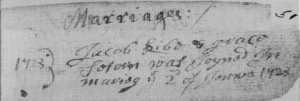 Marriages:
51
1723 Jacob Sibd & grace
was Joynd in
mariag ye 2d of Janua 1723